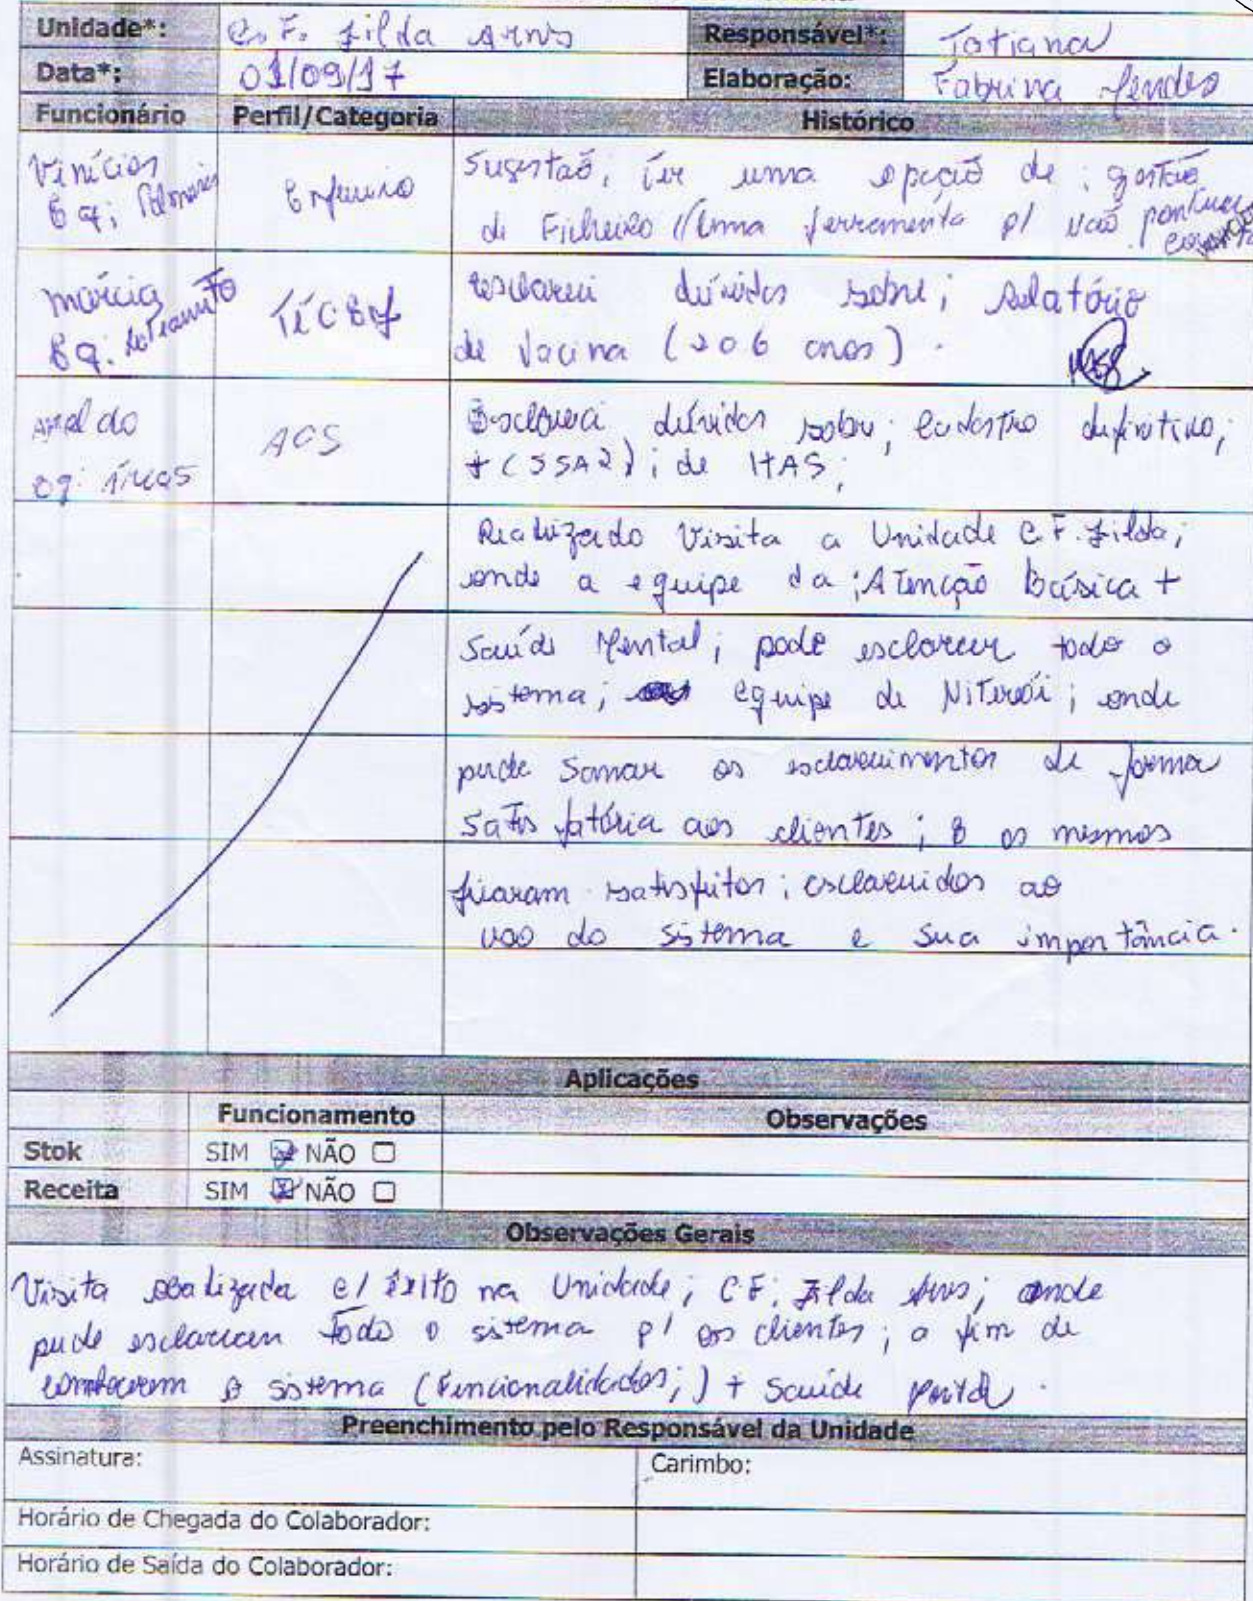 Unidade*: C.F. Zilda Arns Responsável*: Tatiana
Data*: 01/09/17 Elaboração: Fabrina Mendes
Funcionário Perfil/Categoria Histórico
Vinícios Sugestão; ter uma opção de; gestão
Eq; Enfermeiro de Ficheiro // Uma ferramenta p/ não
Márcia esclareci dúvidas sobre; Relatório
Eq: TÉC Enf de Vacina (206 anos).
ACS Esclareci dúvidas sobre; Cadastro definitivo;
Eq: + (SSA2); de HAS;
Realizado Visita a Unidade C.F. Zilda;
onde a equipe da; Atenção Básica +
Saúde Mental; pode esclarecer todo o
sistema; equipe de Niterói; onde
pude Somar os esclarecimentos de forma
Satisfatória aos clientes; E os mesmos
ficaram satisfeitos; esclarecidos ao
uso do sistema e sua importância.
Aplicações
Funcionamento Observações
Stok SIM NÃO
Receita SIM NÃO
Observações Gerais
Visita realizada c/ êxito na Unidade; C.F. Zilda Arns; onde
pude esclarecer todo o sistema p/ os clientes; a fim de
conhecerem o sistema (Funcionalidades;) + Saúde
Preenchimento pelo Responsável da Unidade
Assinatura: Carimbo:
Horário de Chegada do Colaborador:
Horário de Saída do Colaborador: